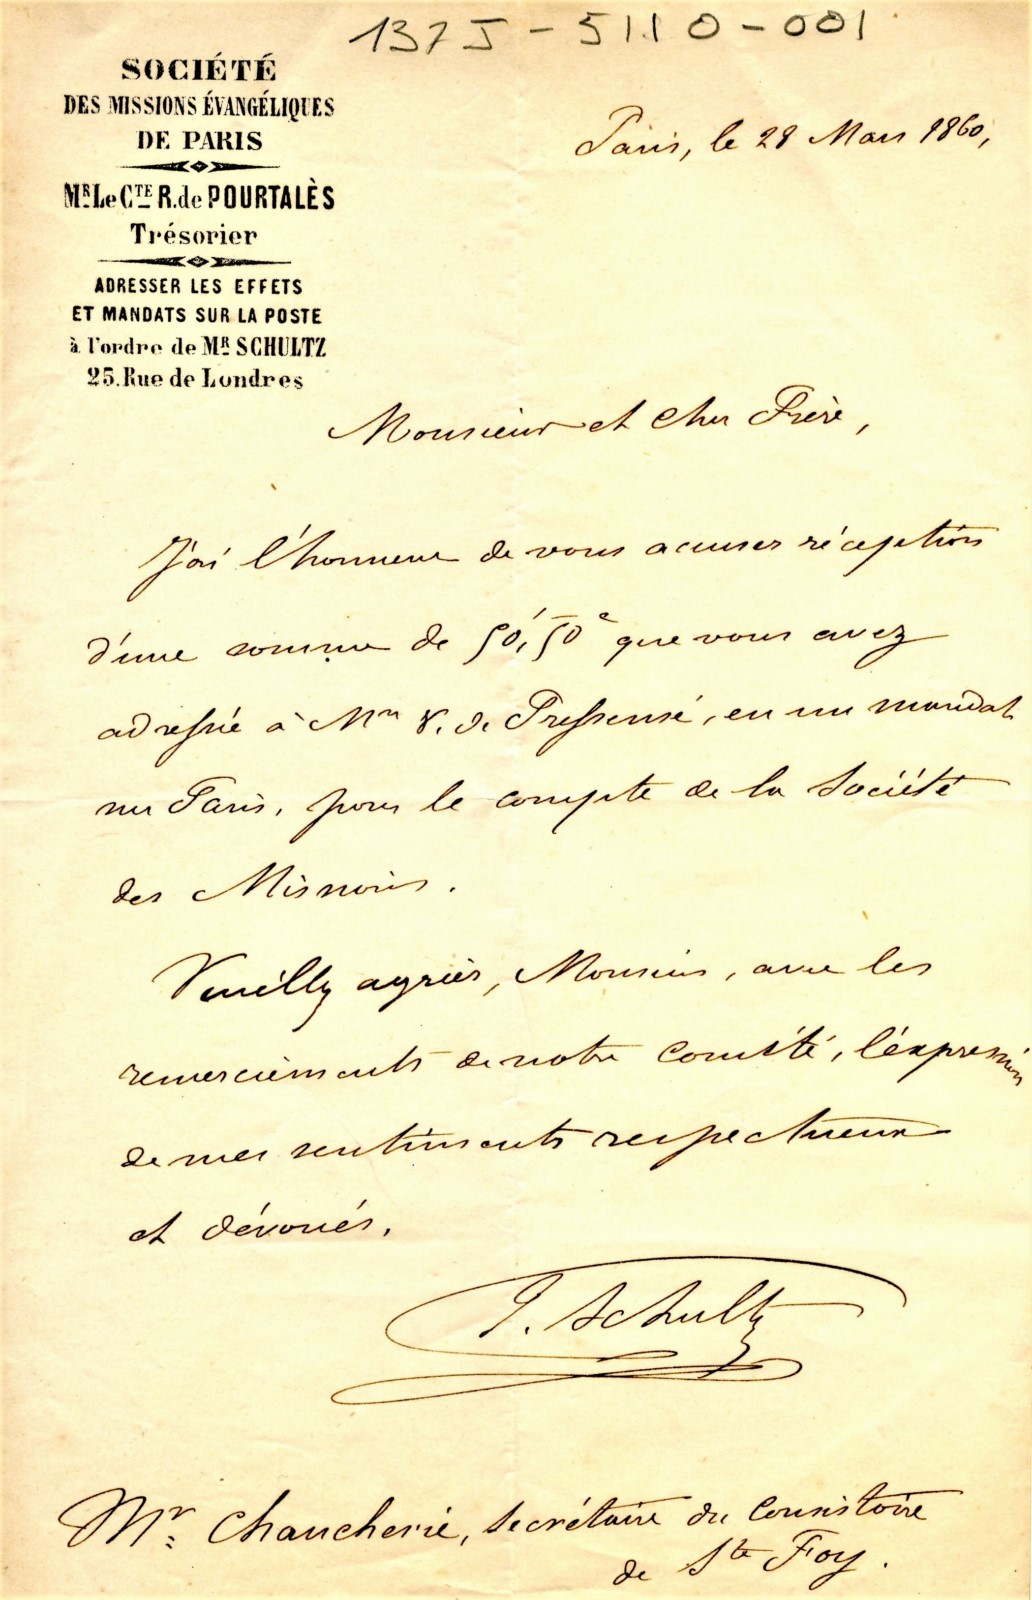 137 J - 5110 - 001
SOCIÉTÉ
DES MISSIONS ÉVANGÉLIQUES
DE PARIS
MR. Le CTE R. de POURTALÈS
Trésorier
ADRESSER LES EFFETS
ET MANDATS SUR LA POSTE
à l'ordre de MR SCHULTZ
25. Rue de Londres
Paris, le 28 Mars 1860,
Monsieur et cher Frère,
J'ai l'honneur de vous accuser réception
d'une somme de 50f, 50c que vous avez
adressée à Mr V. de Pressensé, en un mandat
sur Paris, pour le compte de la Société
des Missions.
Veuillez agréer, Monsieur, avec les
remerciements de notre Comité, l'expression
de mes sentiments respectueux
et dévoués.
J. Schultz
Mr. Chaucherie, Secrétaire du Consistoire
de Ste Foy.